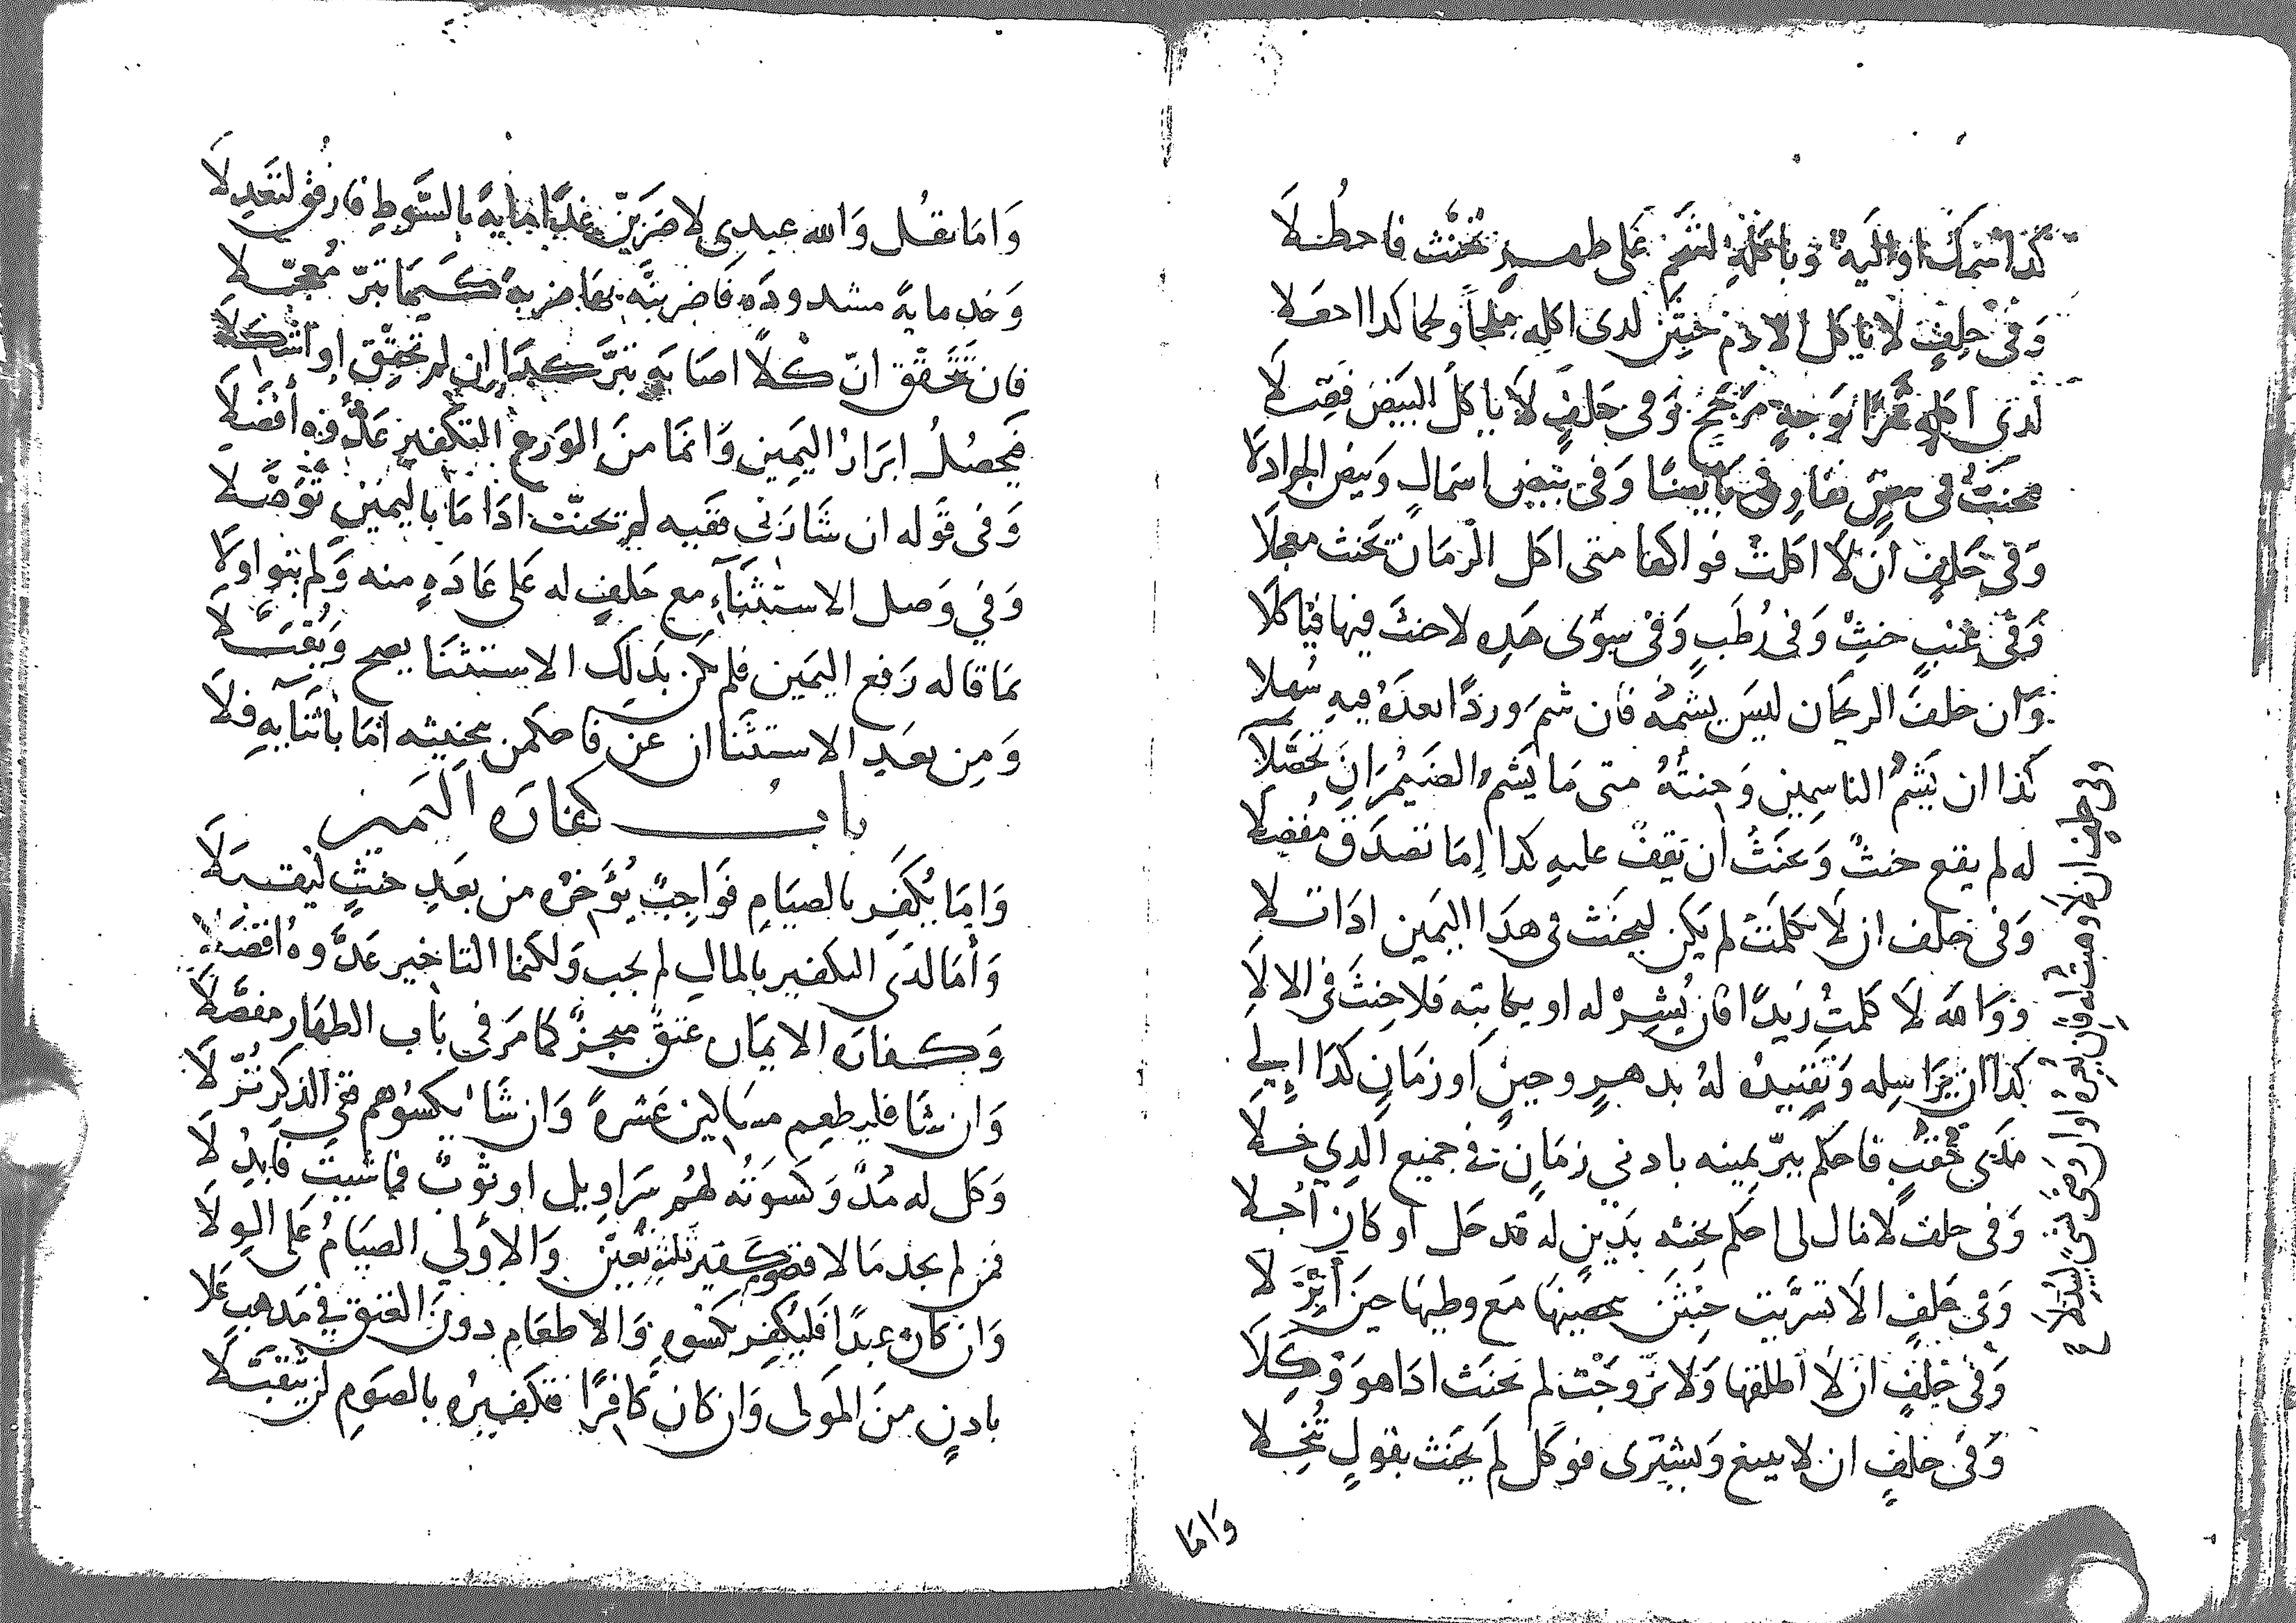 كذا سمك او الية وبأكله لشحم على ظهر تحنث فاحظلا
وفي حلف لا ياكل الادم حنثن لدى اكله ملحا ولحما كذا اجعلا
لدى اكله تمرا بوجه مرجح وفي حلف لا ياكل البيض فصلا
وفي بيض اسمال وبيض الجراد لا
وفي حلف ان لا اكلت فواكها متى اكل الرمان تحنث معجلا
وفي عنب حنث وفي رطب وفي سوى هذه لا حنث فيها فيا كلا
وان حلف الريحان ليس يشمه فان شم وردا بعده فيه سهلا
كذا ان يشم الياسمين وحنثه متى ما يشم الضيمران تحصلا
له لم يقع حنث وعنث ان يقف عليه كذا إما تصدق مفضلا
وفي حلف ان لا تكلمت لم يكن ليحنث في هذا اليمين اذا تلا
ووالله لا كلمت زيدا فان يشر له او يكاتبه فلا حنث في الالا
كذا ان يراسله وتقييده له بدهر وحين او زمان كذا إلي
مدى حقب فاحكم ببر يمينه بادني زمان في جميع الذي خلا
وفي حلف لا مال لى احكم بحنثه بدين له قد حل او كان أجلا
وفي حلف الا تسريت حنثن بحصينها مع وطيها حين أنزلا
وفي حلف ان لا اطلقها ولا تزوجت لم تحنث اذا هو وكلا
وفي حلف ان لا يبيع ويشترى فوكل لم يحنث بقول تنخلا
وفي حلف ان لا وهبت له فان يعره او اوصى بشي
واما
واما يقل والله عبدي لاضربن غدا مايه بالسوط فارفق لتعدلا
وخذ مايه مشدوده فاضربنه بها ضربة كيما تبر معجلا
فان تتحقق ان كلا اصابه تبر كذا ان لم تحقق او اشكلا
فيحصل ابرار اليمين وانما من الورع التكفير عدوه أفضلا
وفي قوله ان شا ربي فقيه لم تحنث اذا ما باليمين توصلا
وفي وصل الاستثناء مع حلف له على عادة منه ولم ينو اولا
بما قاله رفع اليمين فلم يكن بذلك الاستثنا يصح ويقبلا
ومن بعد الاستثنا ان عن فاحكمن بحنثه اما باثنايه فلا
باب كفاره اليمين
واما يكفر بالصيام فواجب يؤخره من بعد حنث ليقبلا
وأما لدى التكفير بالمال لم يجب ولكنما التاخير عدوه افضلا
وكفاره الايمان عتق مجز كما مر في باب الظهار مفصلا
وان شا فليطعم مساكين عشرة وان شا يكسوهم ففي الذكر نزلا
وكل له مد وكسوته لهم سراويل او ثوب فما شيت فابذلا
فمن لم يجد مالا فصوم كفقير ثلثه يعين والاولي الصيام على الولا
وان كان عبدا فليكفر بكسوه والاطعام دون العتق في مذهب علا
باذن من المولى وان كان كافرا فتكفيره بالصوم لن يتقبلا